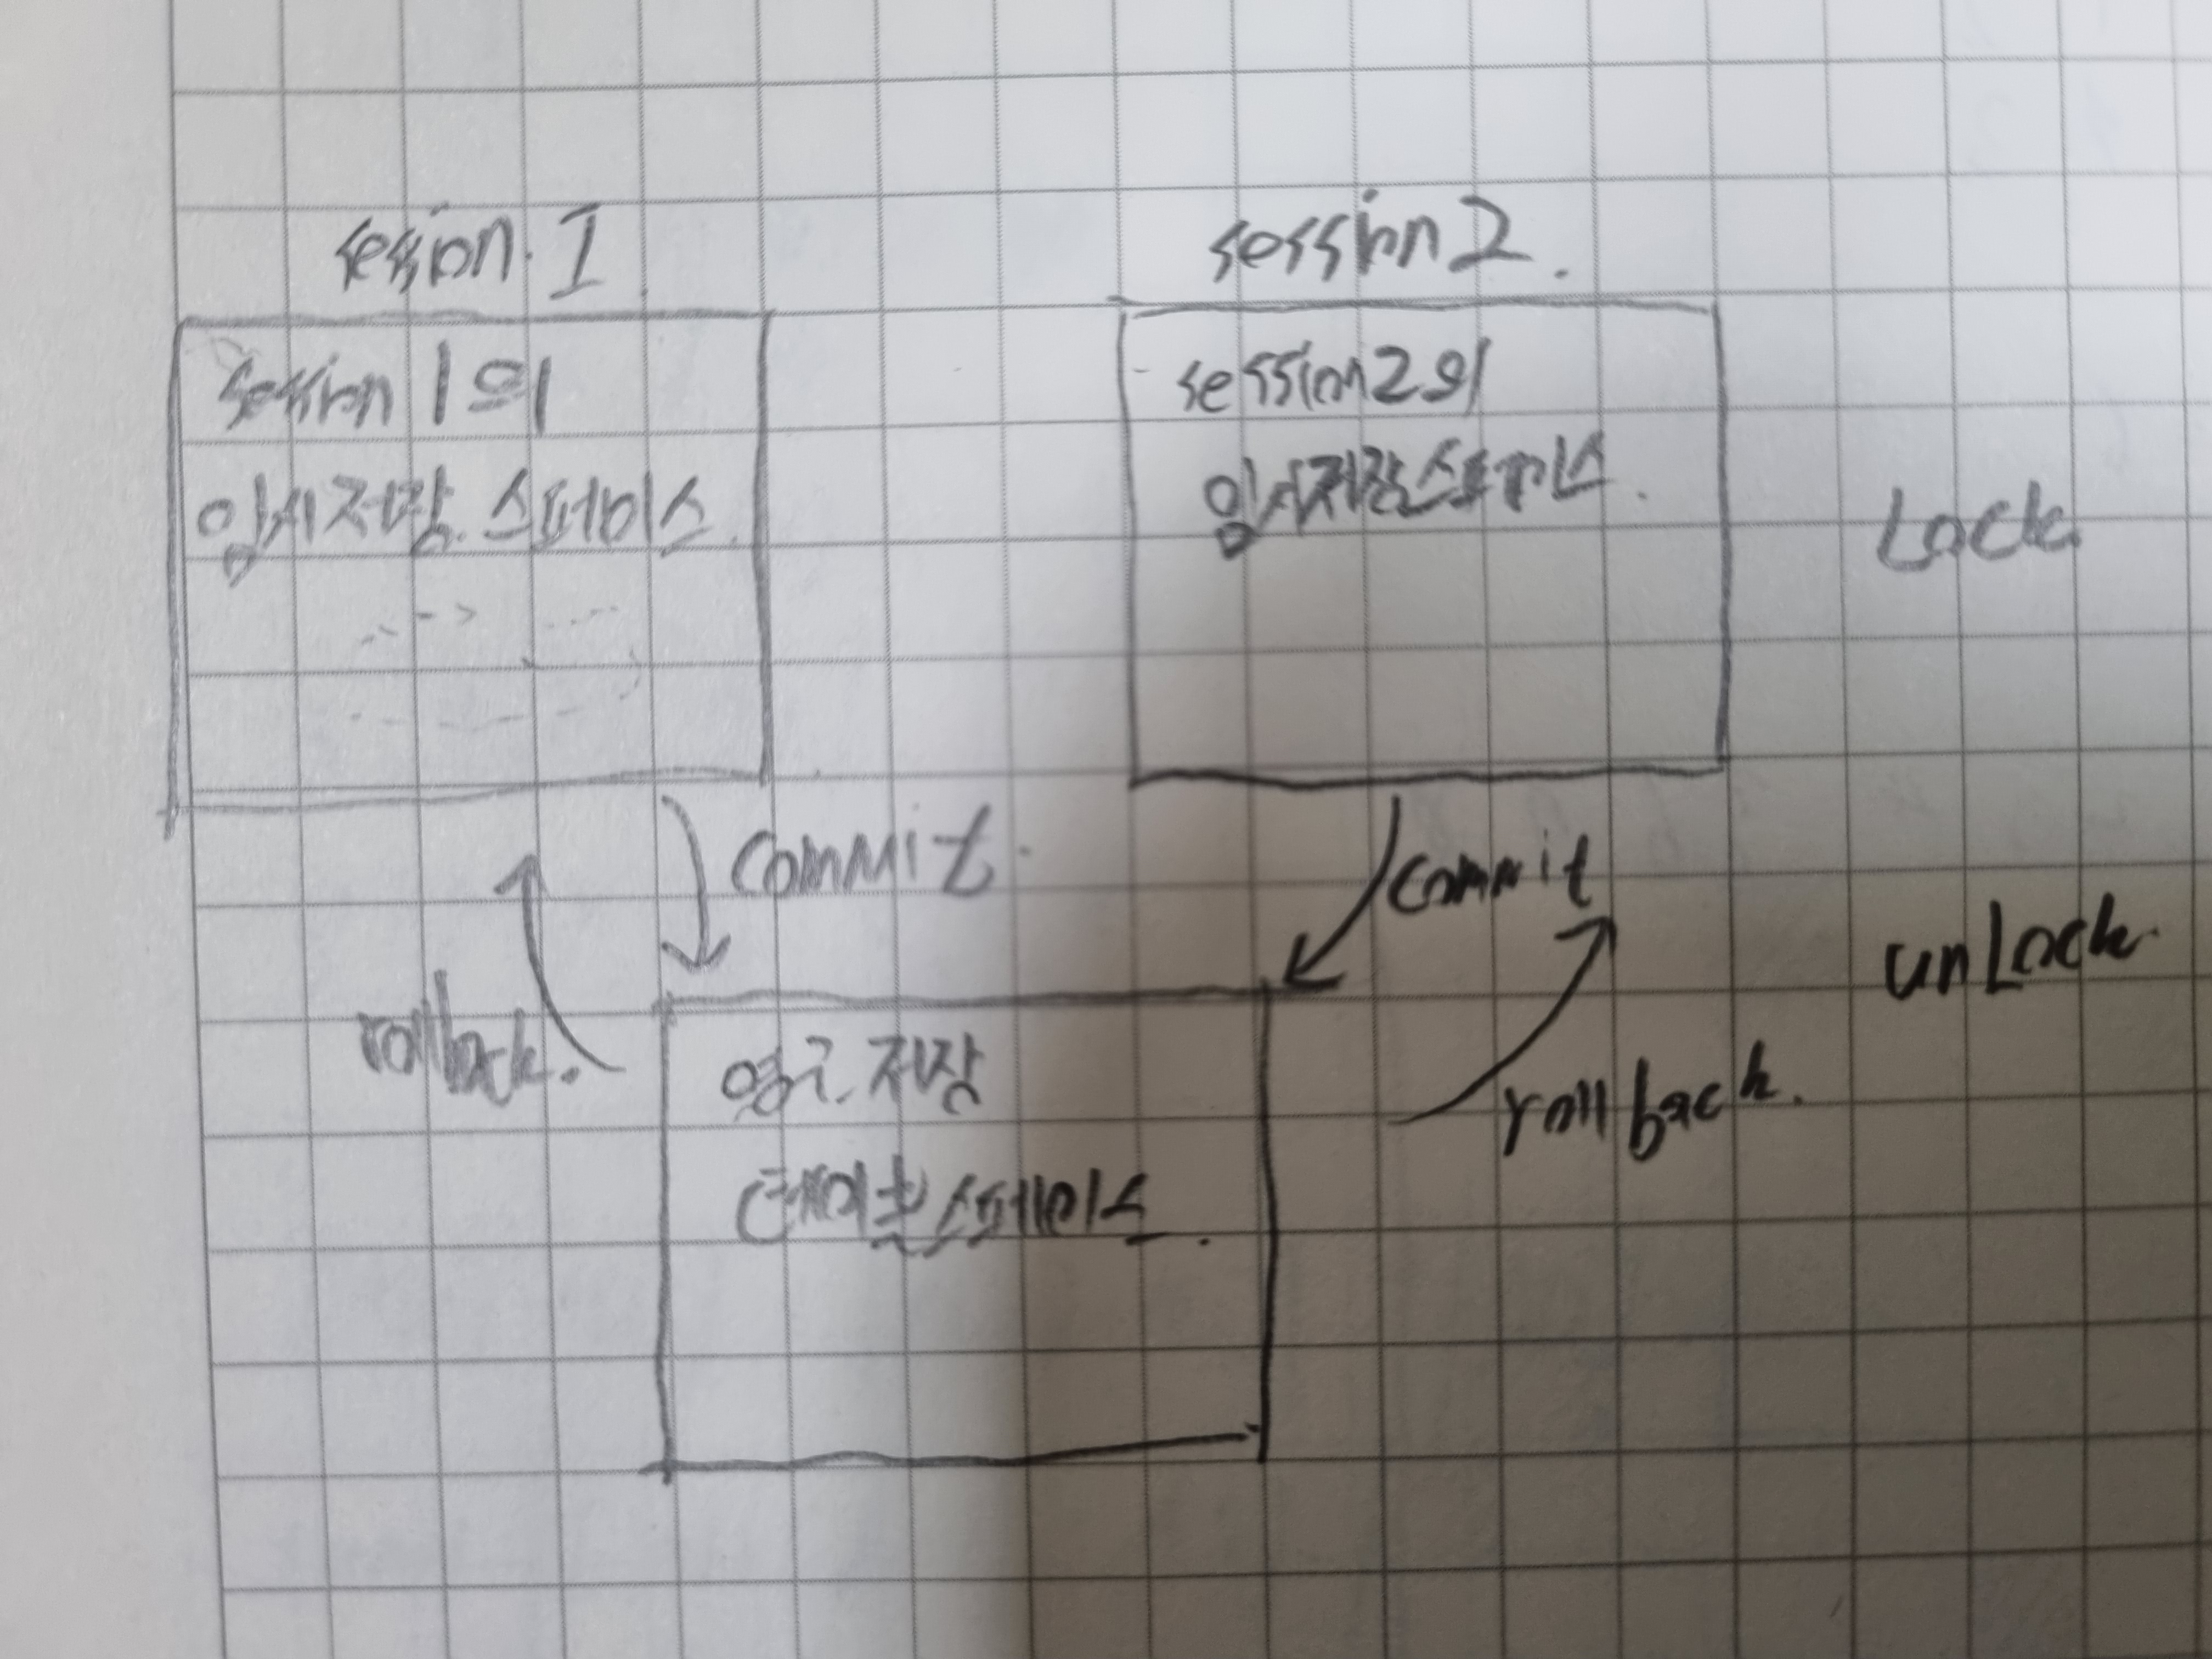 session. 1
session 2.
session 1의
임시저장. 스페이스.
session2의
임시저장스페이스.
Lock
commit.
commit
unLock.
rollback.
rollback.
영구 저장
테이블스페이스.